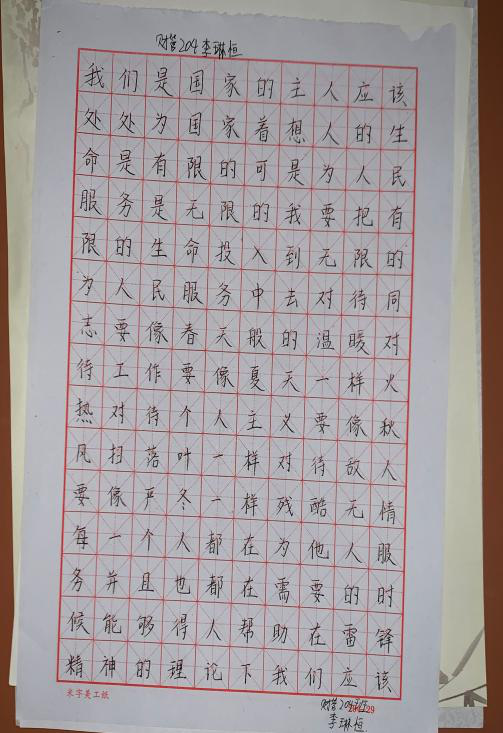 财管204 李琳恒
我们是国家的主人应该
处处为国家着想人的生
命是有限的可是为人民
服务是无限的我要把有
限的生命投入到无限的
为人民服务中去对待同
志要像春天般的温暖对
待工作要像夏天一样火
热对待个人主义要像秋
风扫落叶一样对待敌人
要像严冬一样残酷无情
每一个人都在为他人服
务并且也都在需要的时
候能够得人帮助在雷锋
精神的理论下我们应该
米字美工纸
财管204
李琳恒